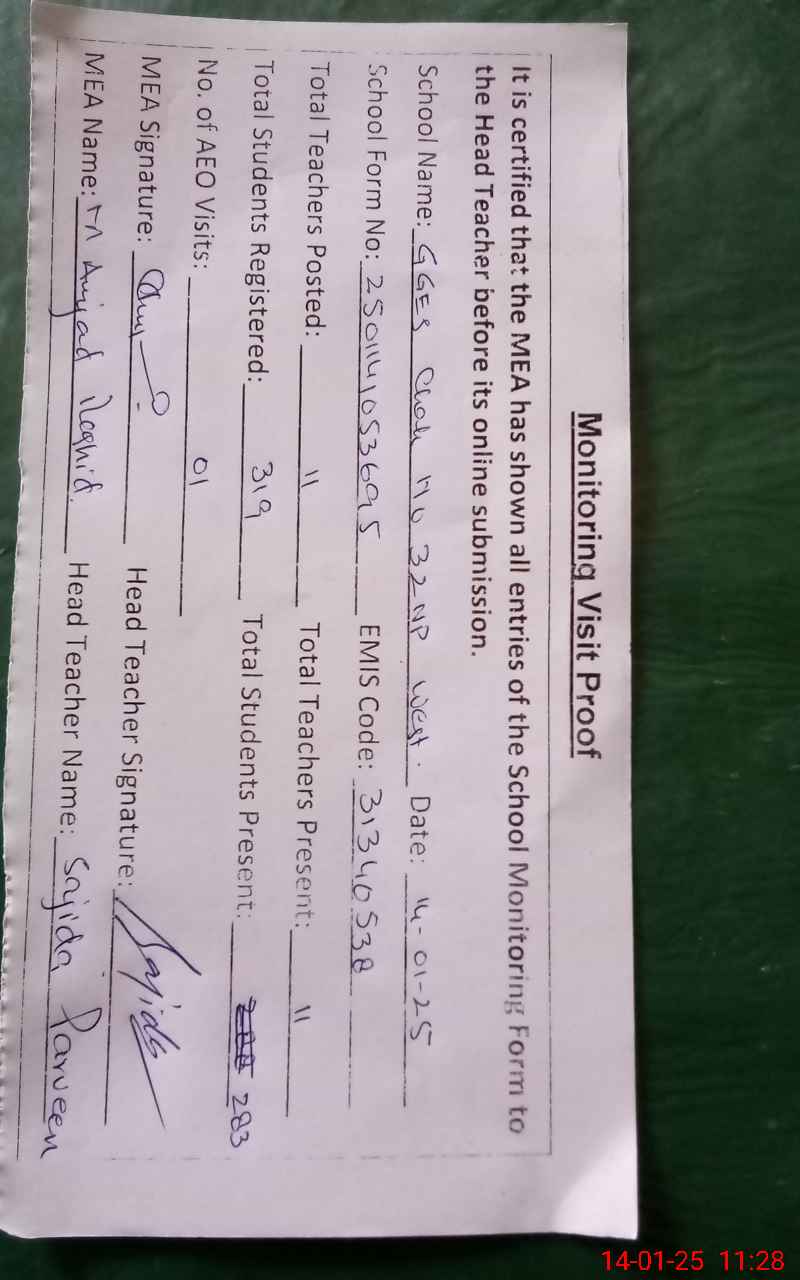 Monitoring Visit Proof
It is certified that the MEA has shown all entries of the School Monitoring Form to
the Head Teacher before its online submission.
School Name: GGES Chak No 32 NP West. Date: 14-01-25
School Form No: 2501141053695 EMIS Code: 31340538
Total Teachers Posted: 11 Total Teachers Present: 11
Total Students Registered: 319 Total Students Present: 283
No. of AEO Visits: 01
MEA Signature: Head Teacher Signature: Sajida
MEA Name: M Amjad Rashid. Head Teacher Name: Sajida Parveen
14-01-25 11:28